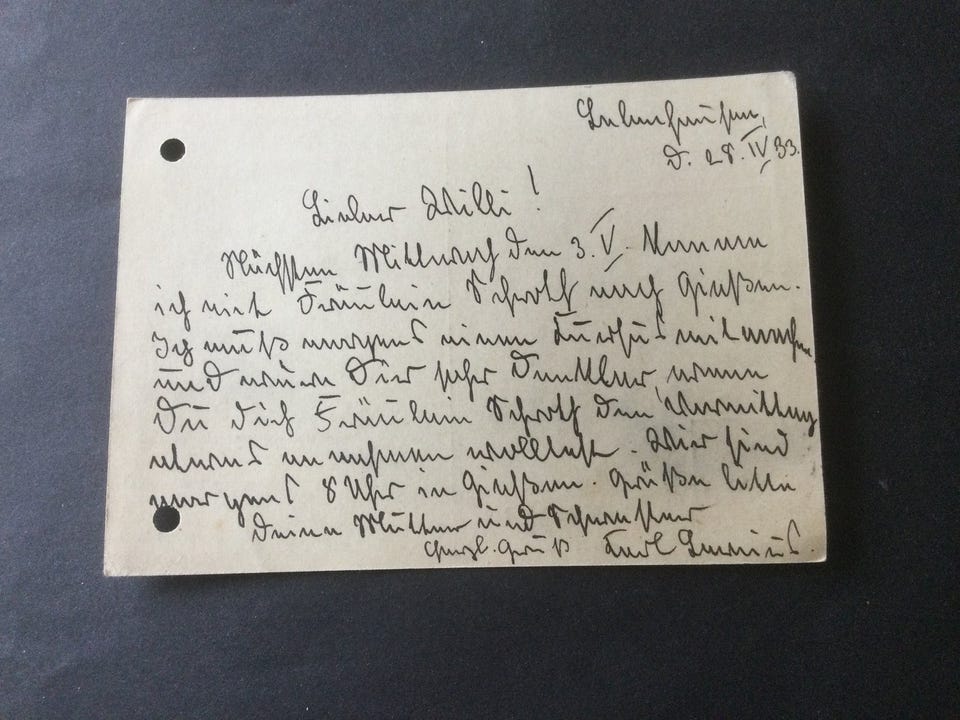 d. 28. IV 33.
Lieber Willi!
Nächsten Mittwoch den 3. V. komme
ich mit Fräulein Schroth nach Gießen.
Ich muß morgens einen Kursus mitmachen
und wäre Dir sehr dankbar, wenn
Du dich Fräulein Schroth den Vormittag
etwas annehmen wolltest. Wir sind
morgens 8 Uhr in Gießen. Grüße bitte
Deine Mutter und Schwester
Herzl. Gruß Karl